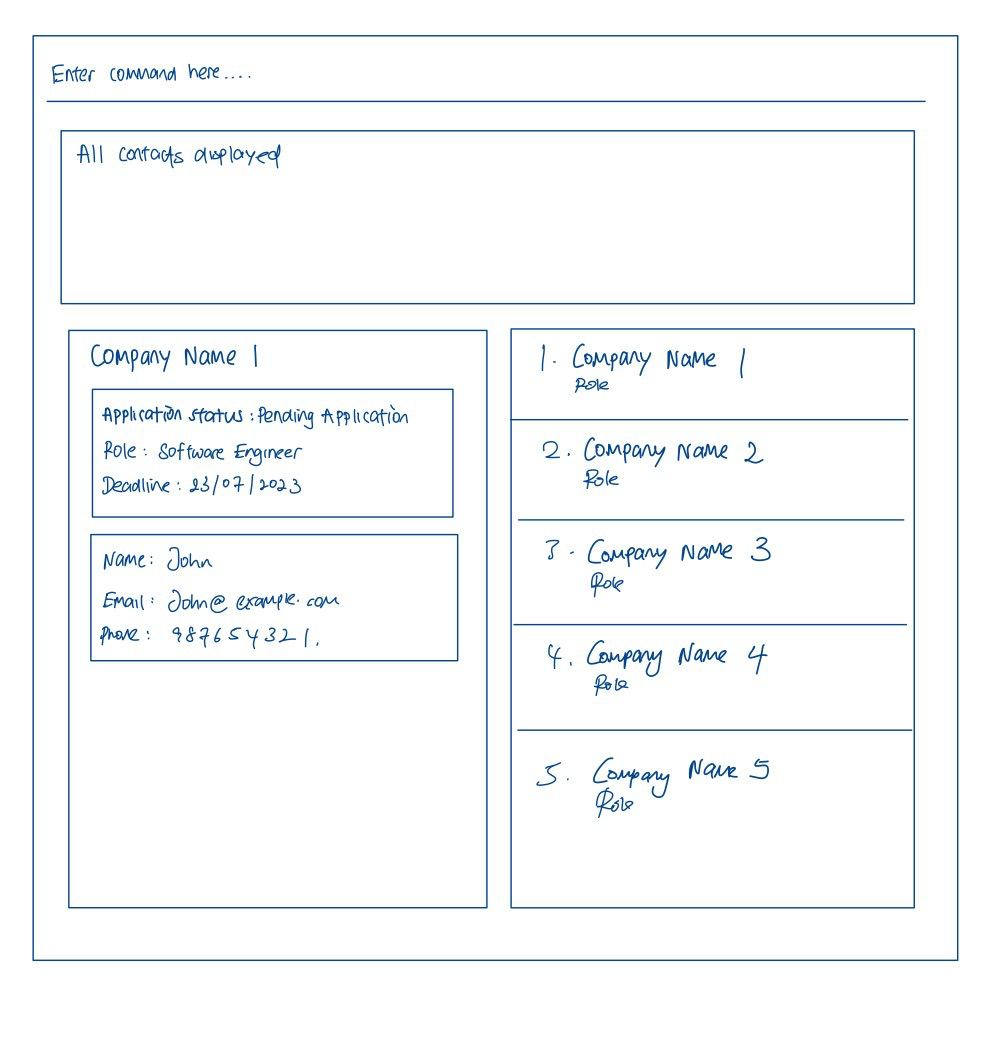 Enter command here....
All contacts displayed
Company Name 1
Application status : Pending Application
Role : Software Engineer
Deadline : 23/07/2023
Name: John
Email : John@example.com
Phone : 987654321.
1. Company Name 1
Role
2. Company Name 2
Role
3. Company Name 3
Role
4. Company Name 4
Role
5. Company Name 5
Role